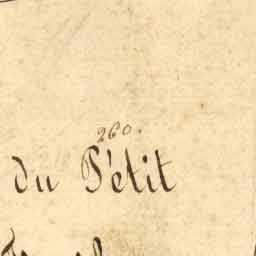 260.
du Pétit